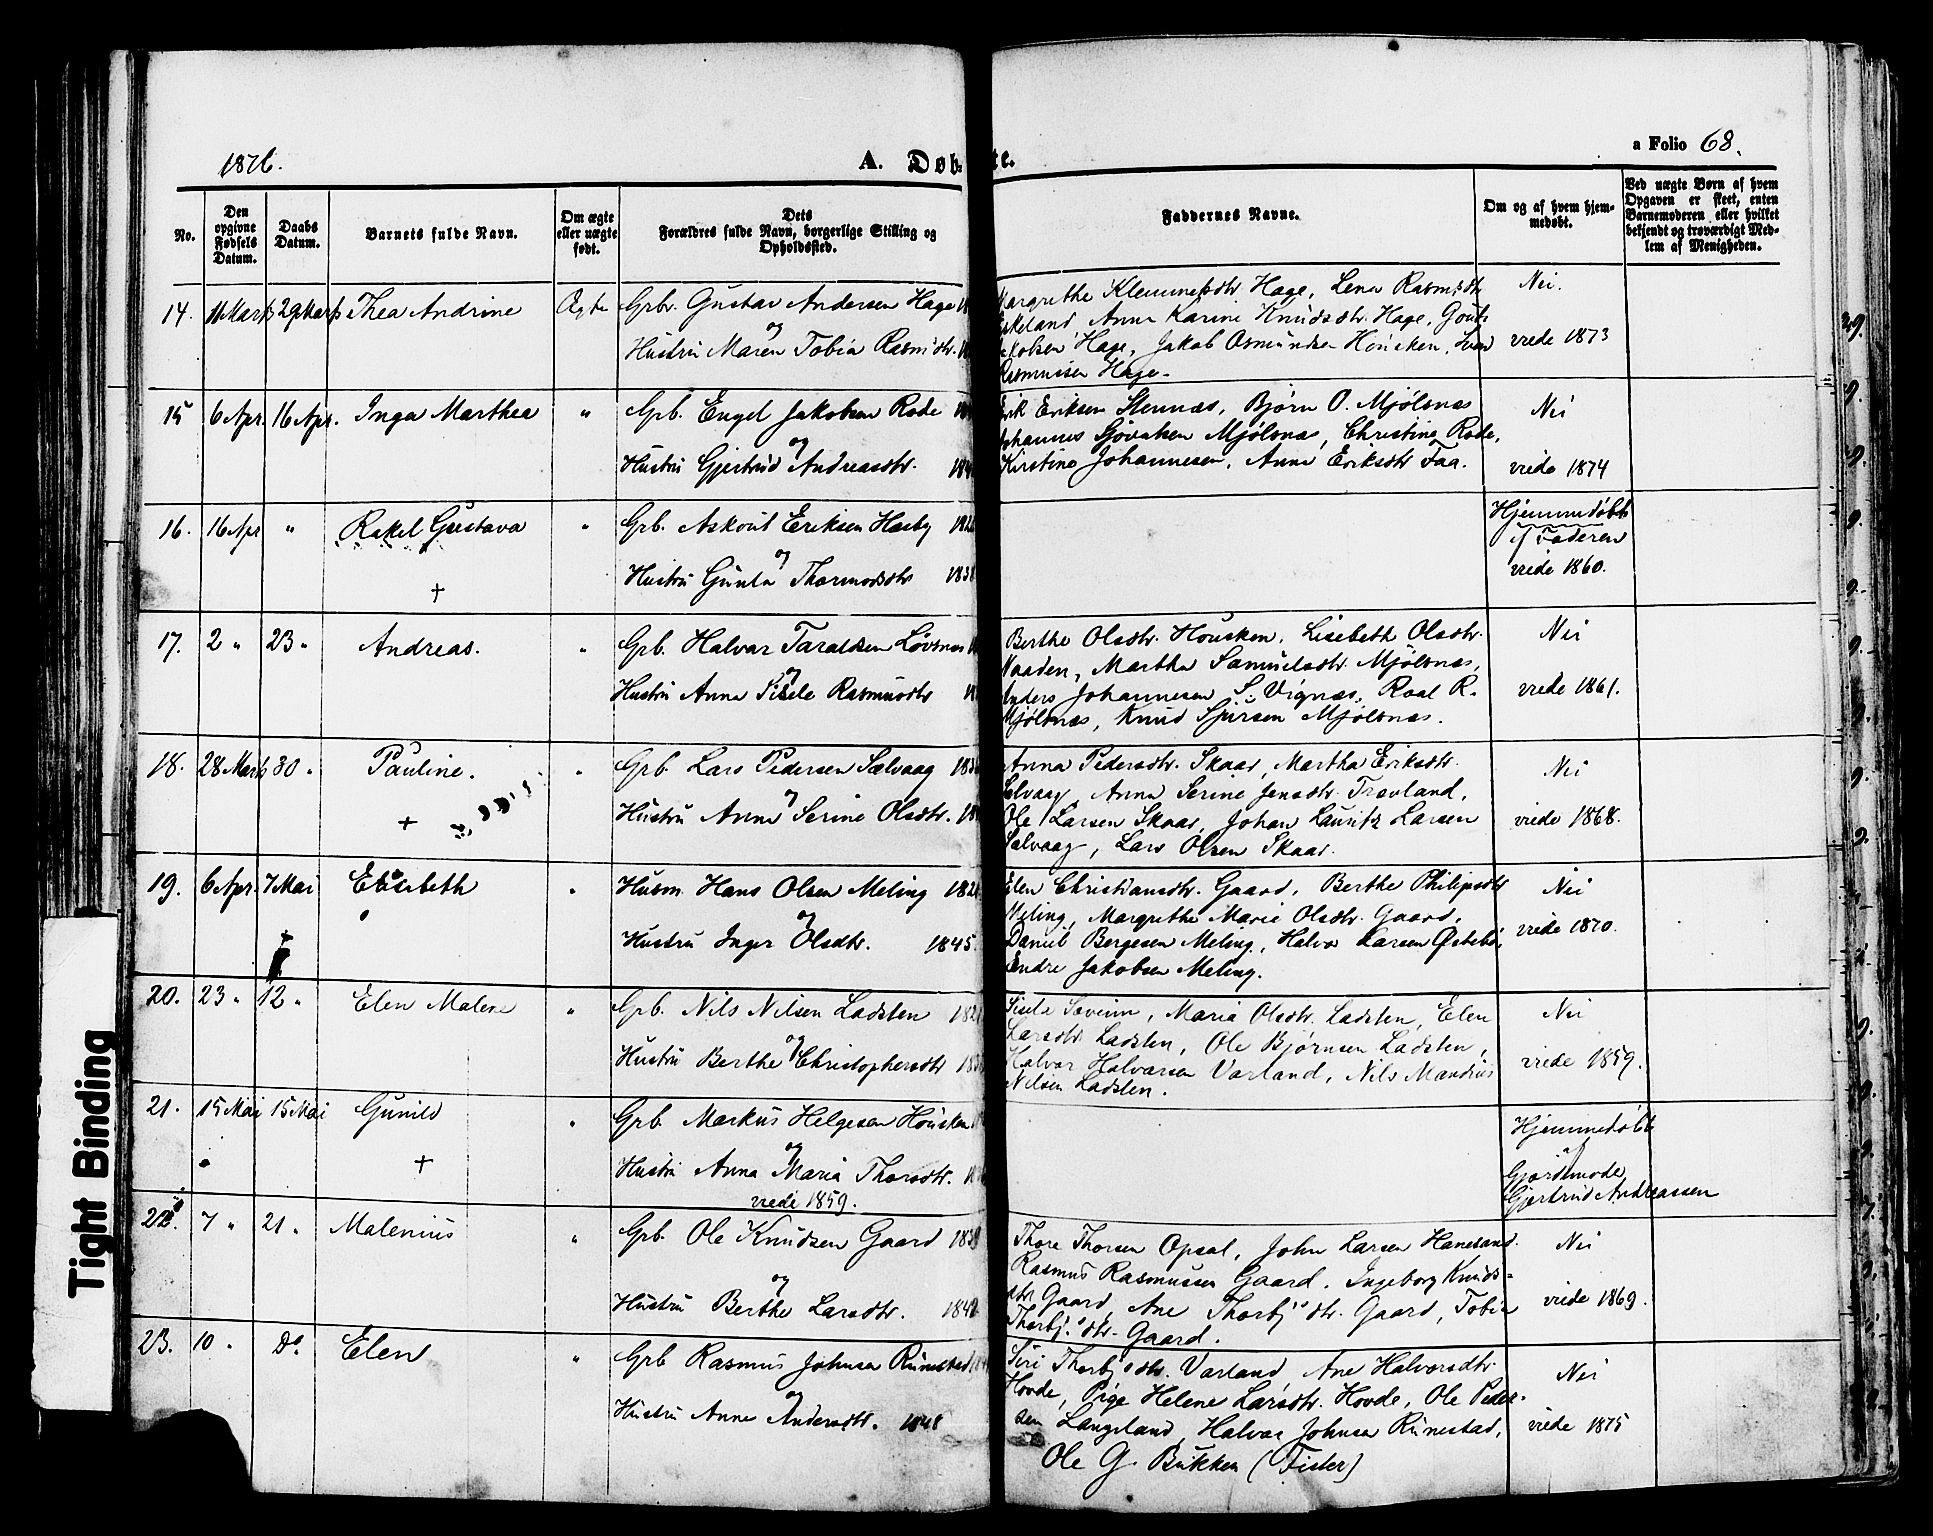 1876.
A. Døb-
te.
a Folio 68.
No.
Den opgivne Fødsels Datum.
Daabs Datum.
Barnets fulde Navn.
Om ægte eller uægte født.
Dets Forældres fulde Navn, borgerlige Stilling og Opholdssted.
Faddernes Navne.
Om og af hvem hjemmedøbt.
Ved uægte Børn af hvem Opgaven er skeet, enten Barnemoderen eller hvilket bekjendt og troværdigt Medlem af Menigheden.
14. 11 Marts 29 Marts Thea Andrine Ægte Grbr. Gustav Andersen Hage
og
Hustru Maren Tobia Rasmsdtr.
Margrethe Klemmetsdtr Hage, Lena Rasmsdtr
Anna Karine Knudsdtr. Hage,
Hage, Jakob Osmundsen Housken,
Rasmussen Hage.
Nei.
vrede 1873
15 6 Apr. 16 Apr. Inga Marthea " Grb. Engel Jakobsen Rode
og
Hustru Gjertrud Andreasdtr.
Erik Eriksen Stennæs, Bjørn O. Mjølsnæs
Johannes Mjølsnæs, Christine Rode,
Kirstine Johannesen, Anna Eriksdtr Faa.
Nei
vrede 1874
16. 16 Apr " Rakel Gustava " Grb. Askout Eriksen Hasby
og
+ Hustru Gunla Thormodsdtr 1838
Hjemmedøbt
af Faderen
vrede 1860.
17. 2 " 23 " Andreas. " Grb. Halvar Taraldsen Løvsnæs
og
Hustru Anna Sisele Rasmusdtr
Berthe Olsdtr. Housken, Lisebeth Olsdtr.
Vaaden, Martha Samuelsdtr. Mjølsnæs,
Anders Johannesen S. Vignæs, Roal R.
Mjølsnæs, Knud Sjursen Mjølsnæs.
Nei
vrede 1861.
18. 28 Marts 30 " Pauline. " Grb. Lars Pedersen Sælvaag
og
+ Hustru Anna Serine Olsdtr.
Anna Pedersdtr. Skaar, Martha Eriksdtr.
Sælvaag, Anna Serine Jensdtr. Travland,
Ole Larsen Skaar, Johan Lauritz Larsen
Sælvaag, Lars Olsen Skaar.
Nei
vrede 1868.
19. 6 Apr. 7 Mai Elisebeth " Husm. Hans Olsen Meling
og
+ Hustru Inger Olsdtr. 1845.
Elen Christiansdtr. Gaard, Berthe Philipsdtr
Meling, Margrethe Marie Olsdtr. Gaard,
Daniel Bergesen Meling, Halvor Larsen Østebø,
Endre Jakobsen Meling.
Nei
vrede 1870.
20. 23 " 12 " Elen Malene " Grb. Nils Nilsen Ladsten
og
Hustru Berthe Christophersdtr
Sisele Severine, Maria Olsdtr. Ladsten, Elen
Larsdtr Ladsten, Ole Bjørnsen Ladsten,
Halvor Halvorsen Varland, Nils Mandius
Nilsen Ladsten.
Nei
vrede 1859.
21. 15 Mai 15 Mai Gunild " Grb. Markus Helgesen Housken
og
+ Hustru Anna Maria Thorsdtr.
vrede 1859.
Hjemmedøbt
af
Gjordmode
Gjertrud Andreassen
22. 7 " 21 " Malenius " Grb. Ole Knudsen Gaard 1839
og
Hustru Berthe Larsdtr. 1842
Thore Thorsen Opsal, John Larsen Haneland.
Rasmus Rasmussen Gaard, Ingeborg Knuds-
dtr Gaard, Ane Thorbj.sdtr. Gaard, Tobia
Thorbj.sdtr. Gaard.
Nei
vrede 1869.
23. 10 " Do. Elen " Grb Rasmus Johnsen Runestad
og
Hustru Anne Andersdtr. 1848
Siri Thorbj.sdtr. Varland, Ane Halvorsdtr.
Hovde, Pige Helene Larsdtr. Hovde, Ole Peder-
sen Langeland, Halvar Johnsen Runestad,
Ole G. Bukken (Fister)
Nei
vrede 1875
Tight Binding